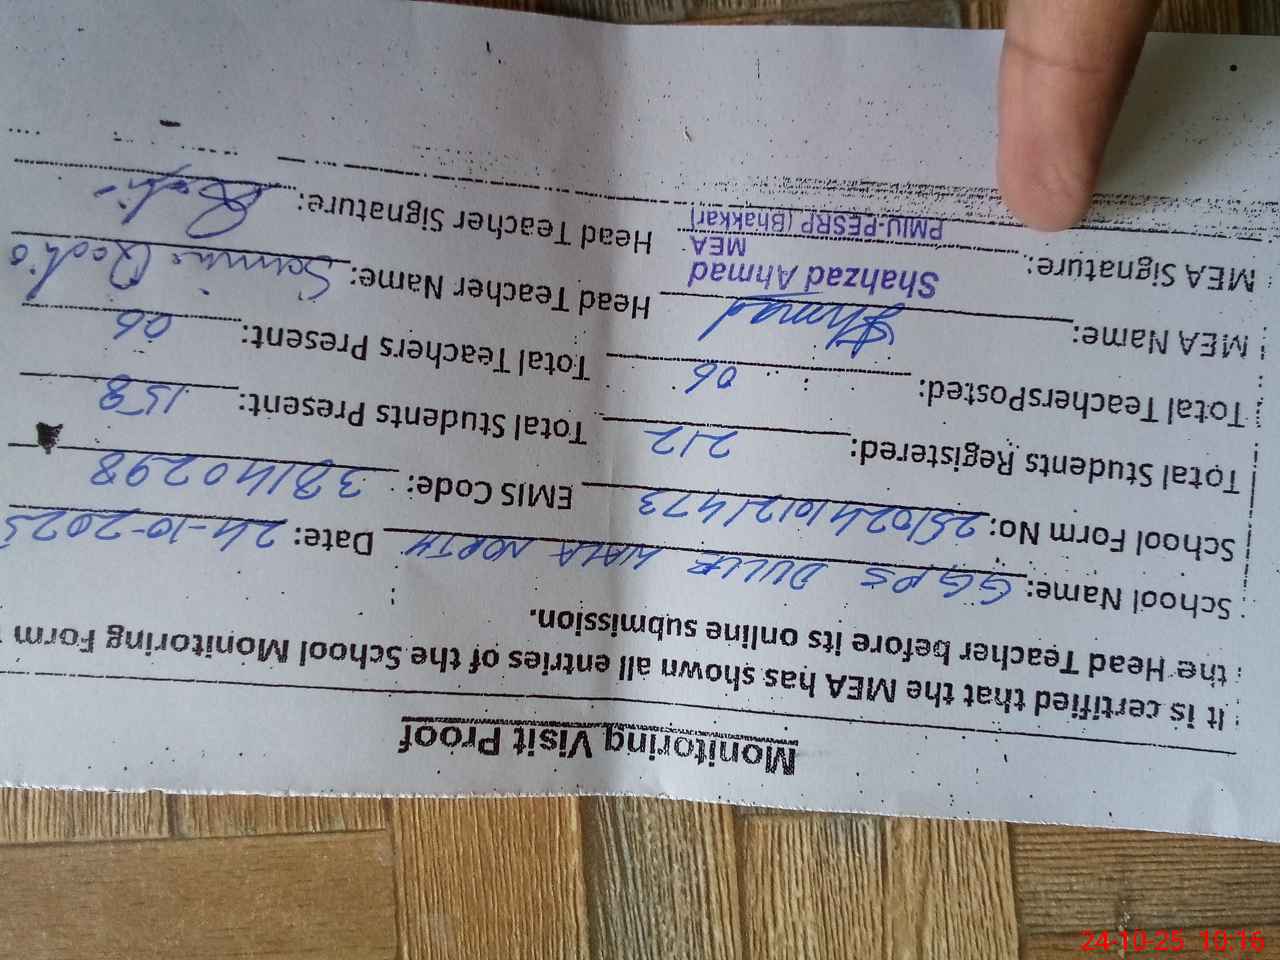 Monitoring Visit Proof
It is certified that the MEA has shown all entries of the School Monitoring Form
the Head Teacher before its online submission.
School Name: GGPS DULLE WALA NORTH Date: 24-10-2025
School Form No: 25102410121473 EMIS Code: 38140298
Total Students Registered: 212 Total Students Present: 158
Total TeachersPosted: 06 Total Teachers Present: 06
MEA Name: Ahmad Head Teacher Name:
MEA Signature: Shahzad Ahmad Head Teacher Signature:
MEA
PMIU-PESRP (Bhakkar)
24-10-25 10:16